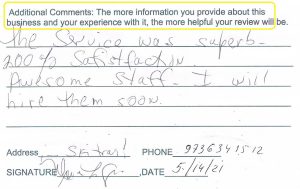 Additional Comments: The more information you provide about this
business and your experience with it, the more helpful your review will be.
The Service was superb.
200% Satisfaction.
Awesome Staff. I will
hire them soon.
Address
PHONE
SIGNATURE
,DATE 5/14/21